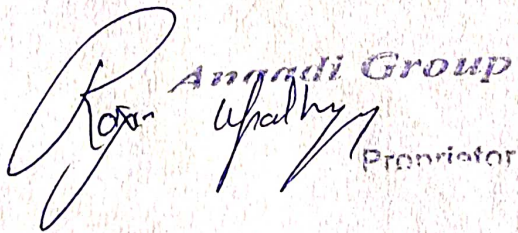 Anaadi Group
Rajan Upadhyay
Proprietor